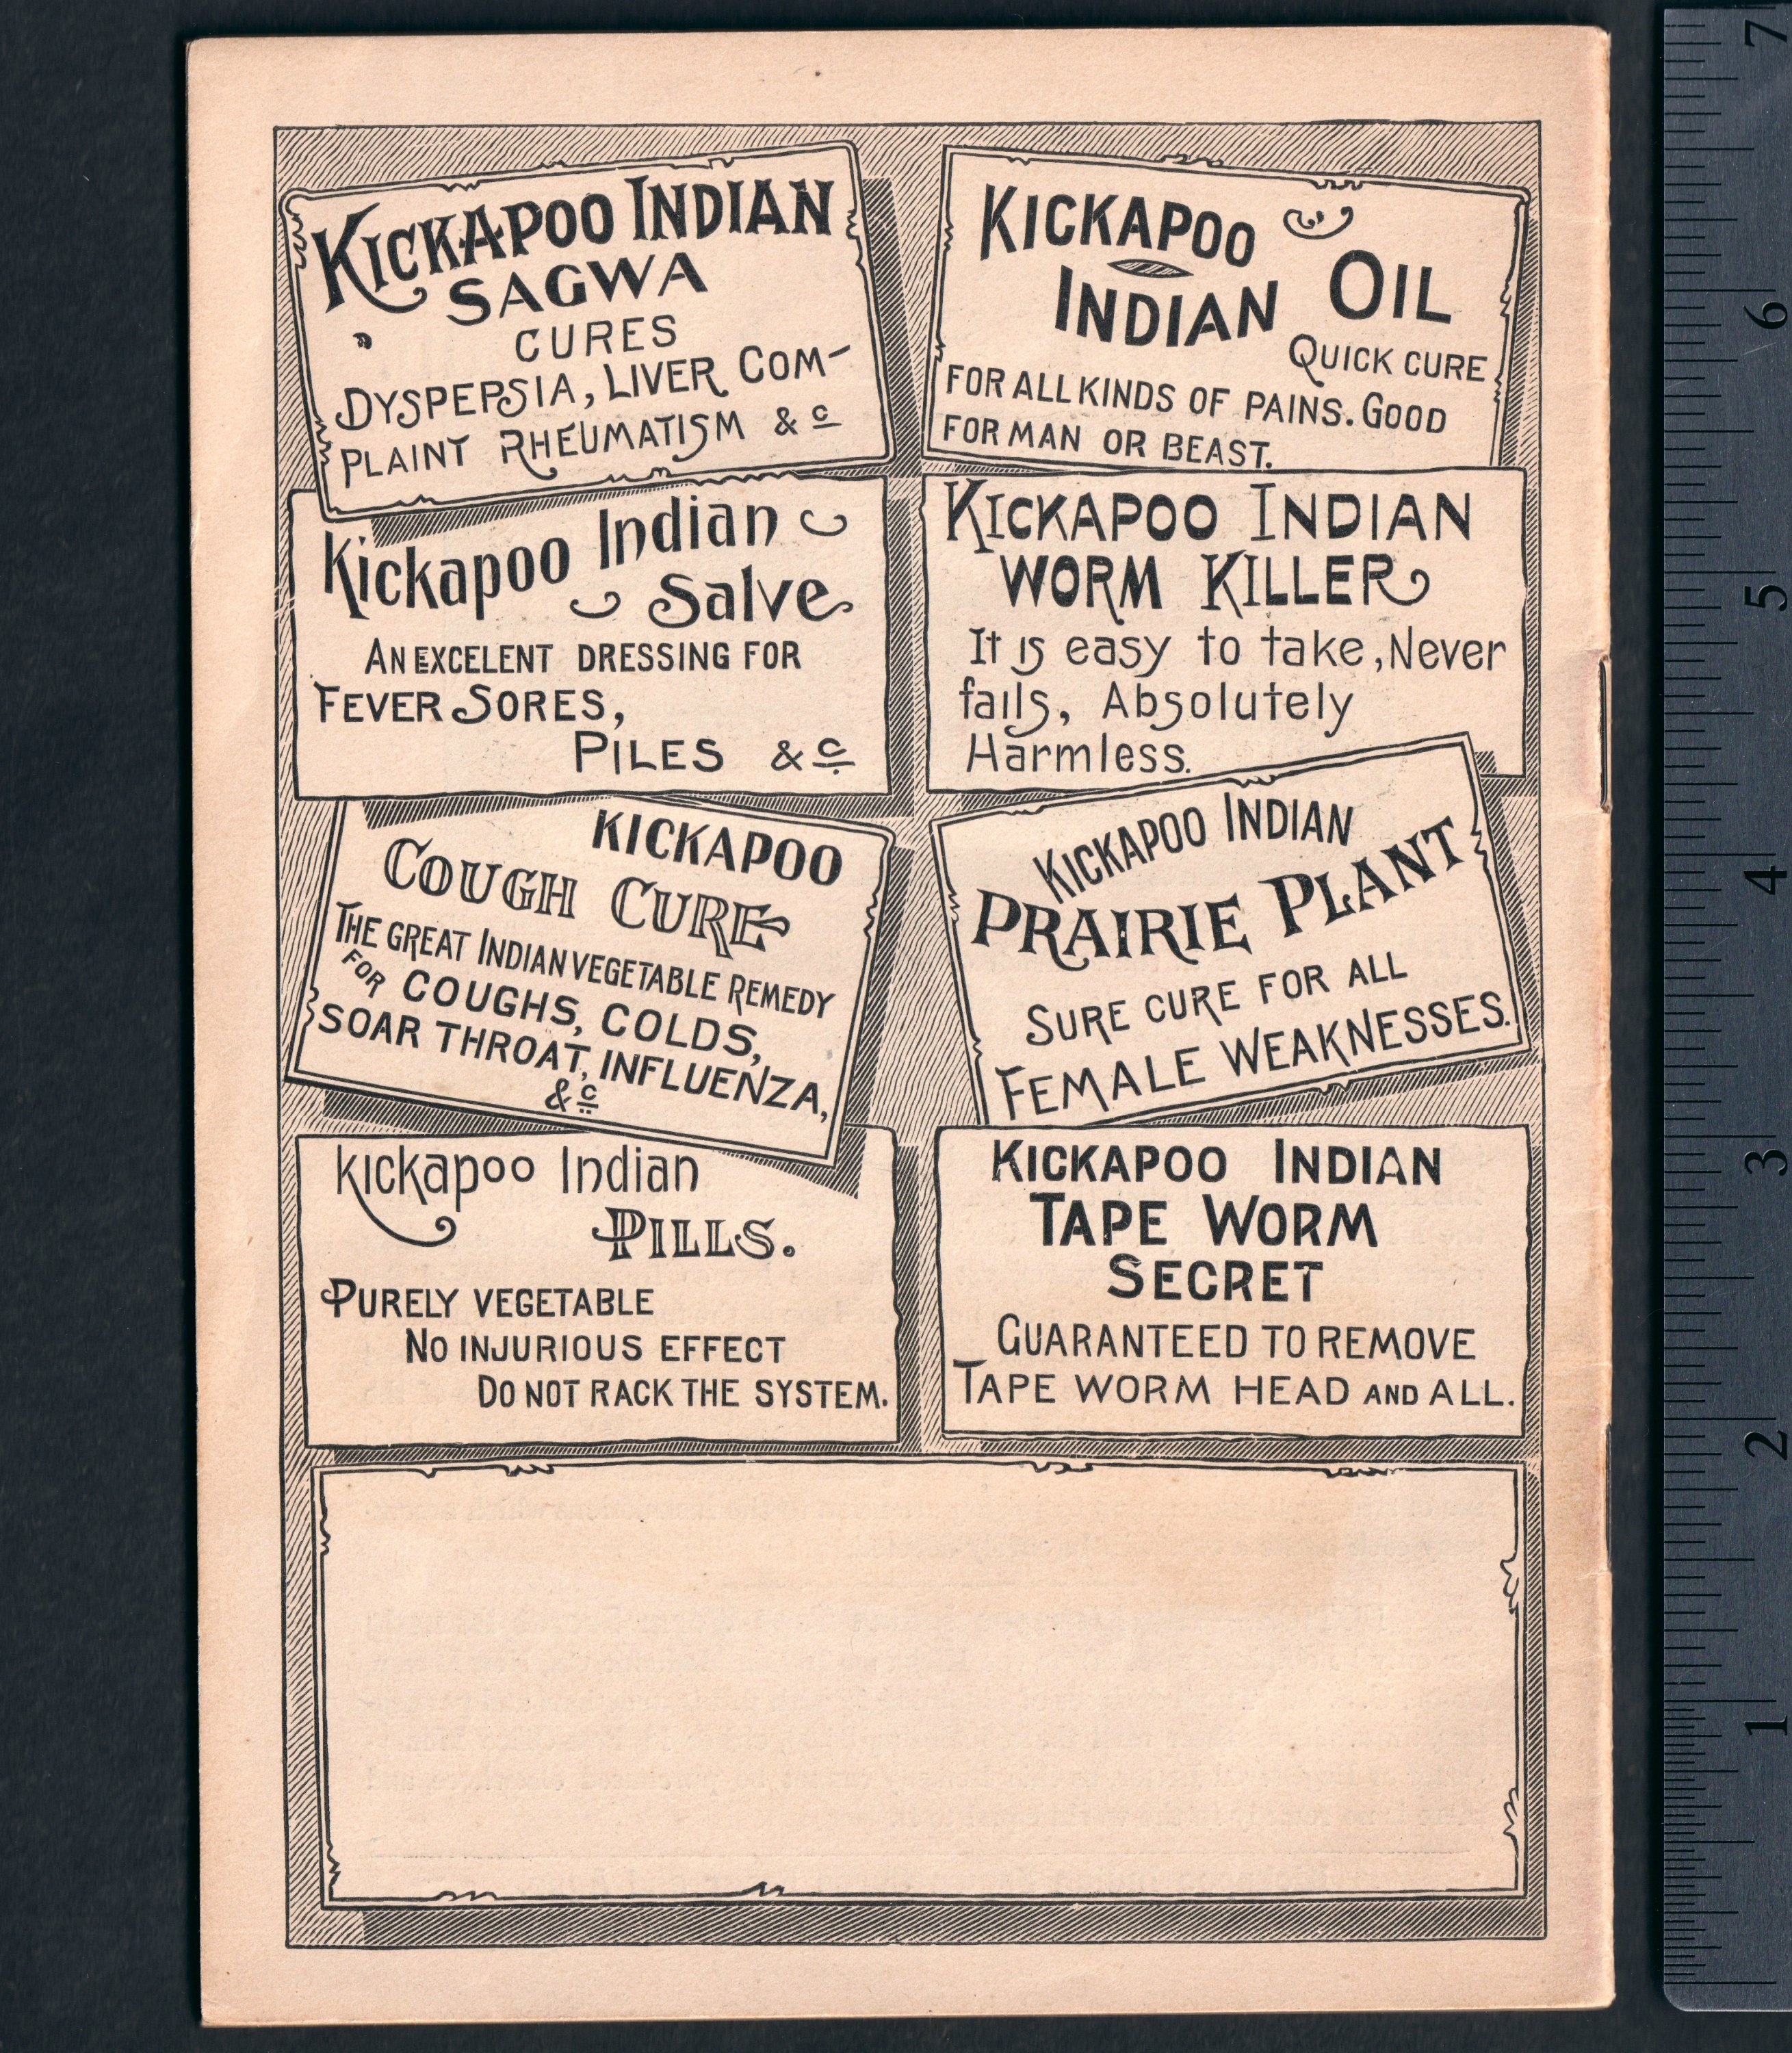 KICKAPOO INDIAN
SAGWA
CURES
DYSPEPSIA, LIVER COM-
PLAINT RHEUMATISM &c
KICKAPOO
INDIAN OIL
QUICK CURE
FOR ALL KINDS OF PAINS. GOOD
FOR MAN OR BEAST.
Kickapoo Indian
Salve
AN EXCELENT DRESSING FOR
FEVER SORES,
PILES &c
KICKAPOO INDIAN
WORM KILLER
It is easy to take, Never
fails, Absolutely
Harmless.
KICKAPOO
COUGH CURE
THE GREAT INDIAN VEGETABLE REMEDY
FOR COUGHS, COLDS,
SOAR THROAT, INFLUENZA,
&c
KICKAPOO INDIAN
PRAIRIE PLANT
SURE CURE FOR ALL
FEMALE WEAKNESSES.
Kickapoo Indian
PILLS.
PURELY VEGETABLE
NO INJURIOUS EFFECT
DO NOT RACK THE SYSTEM.
KICKAPOO INDIAN
TAPE WORM
SECRET
GUARANTEED TO REMOVE
TAPE WORM HEAD AND ALL.
7
6
5
4
3
2
1